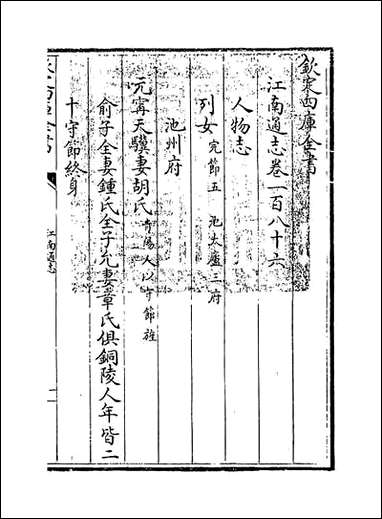 欽定四庫全書
江南通志卷一百八十六
人物志
列女 完節五 池太廬三府
池州府
元甯天驥妻胡氏 青陽人以守節旌
俞子全妻鍾氏全子允妻章氏俱銅陵人年皆二
十守節終身
江南通志